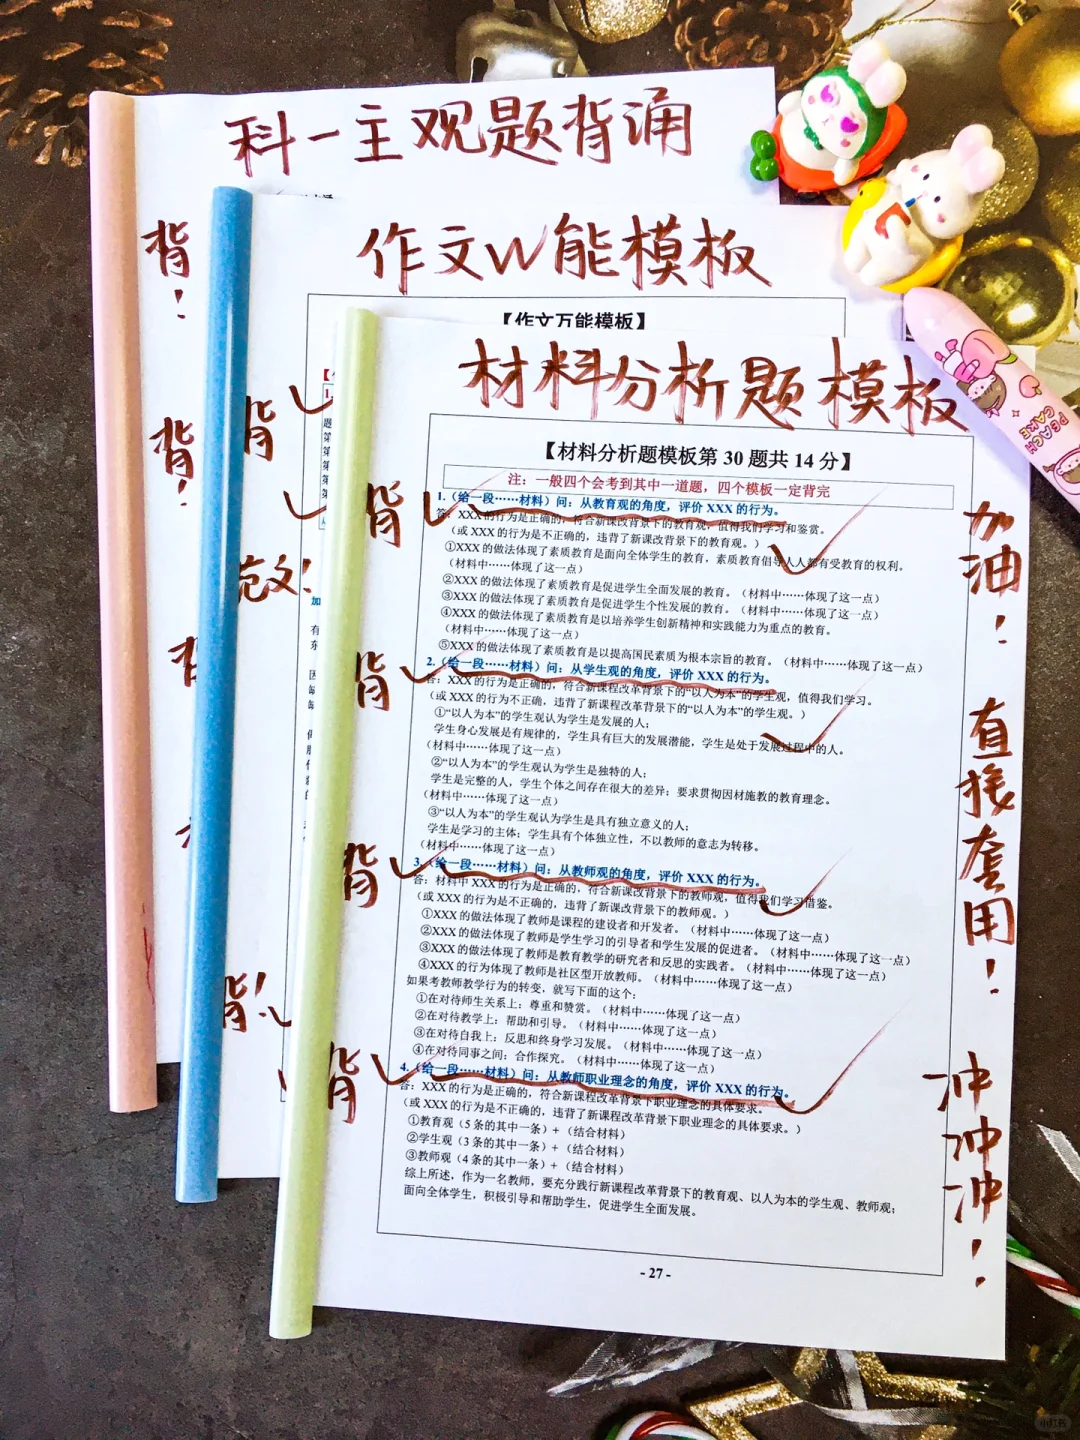 科一主观题背涌
背!
背!
背
作文W能模板
【作文万能模板】
背
范文!
背!
材料分析题模板
【材料分析题模板第 30 题共 14 分】
注：一般四个会考到其中一道题，四个模板一定背完
背
1.（给一段……材料）问：从教育观的角度，评价 XXX 的行为。
答：XXX 的行为是正确的，符合新课改背景下的教育观，值得我们学习和鉴赏。
（或 XXX 的行为是不正确的，违背了新课改背景下的教育观。）
①XXX 的做法体现了素质教育是面向全体学生的教育，素质教育倡导人人都有受教育的权利。
（材料中……体现了这一点）
②XXX 的做法体现了素质教育是促进学生全面发展的教育。（材料中……体现了这一点）
③XXX 的做法体现了素质教育是促进学生个性发展的教育。（材料中……体现了这一点）
④XXX 的做法体现了素质教育是以培养学生创新精神和实践能力为重点的教育。
（材料中……体现了这一点）
⑤XXX 的做法体现了素质教育是以提高国民素质为根本宗旨的教育。（材料中……体现了这一点）
背
2.（给一段……材料）问：从学生观的角度，评价 XXX 的行为。
答：XXX 的行为是正确的，符合新课程改革背景下的“以人为本”的学生观，值得我们学习。
（或 XXX 的行为不正确，违背了新课程改革背景下的“以人为本”的学生观。）
①“以人为本”的学生观认为学生是发展的人；
学生身心发展是有规律的，学生具有巨大的发展潜能，学生是处于发展过程中的人。
（材料中……体现了这一点）
②“以人为本”的学生观认为学生是独特的人；
学生是完整的人，学生个体之间存在很大的差异；要求贯彻因材施教的教育理念。
（材料中……体现了这一点）
③“以人为本”的学生观认为学生是具有独立意义的人；
学生是学习的主体；学生具有个体独立性，不以教师的意志为转移。
（材料中……体现了这一点）
背
3.（给一段……材料）问：从教师观的角度，评价 XXX 的行为。
答：材料中 XXX 的行为是正确的，符合新课改背景下的教师观，值得我们学习借鉴。
（或 XXX 的行为是不正确的，违背了新课改背景下的教师观。）
①XXX 的做法体现了教师是课程的建设者和开发者。（材料中……体现了这一点）
②XXX 的做法体现了教师是学生学习的引导者和学生发展的促进者。（材料中……体现了这一点）
③XXX 的做法体现了教师是教育教学的研究者和反思的实践者。（材料中……体现了这一点）
④XXX 的行为体现了教师是社区型开放教师。（材料中……体现了这一点）
如果考教师教学行为的转变，就写下面的这个：
①在对待师生关系上：尊重和赞赏。（材料中……体现了这一点）
②在对待教学上：帮助和引导。（材料中……体现了这一点）
③在对待自我上：反思和终身学习发展。（材料中……体现了这一点）
④在对待同事之间：合作探究。（材料中……体现了这一点）
背
4.（给一段……材料）问：从教师职业理念的角度，评价 XXX 的行为。
答：XXX 的行为是正确的，符合新课程改革背景下职业理念的具体要求。
（或 XXX 的行为是不正确的，违背了新课程改革背景下职业理念的具体要求。）
①教育观（5 条的其中一条）+（结合材料）
②学生观（3 条的其中一条）+（结合材料）
③教师观（4 条的其中一条）+（结合材料）
综上所述，作为一名教师，要充分践行新课程改革背景下的教育观、以人为本的学生观、教师观；
面向全体学生，积极引导和帮助学生，促进学生全面发展。
- 27 -
加油!
直接套用!
冲冲冲!
PEACH
CAKE
小红书